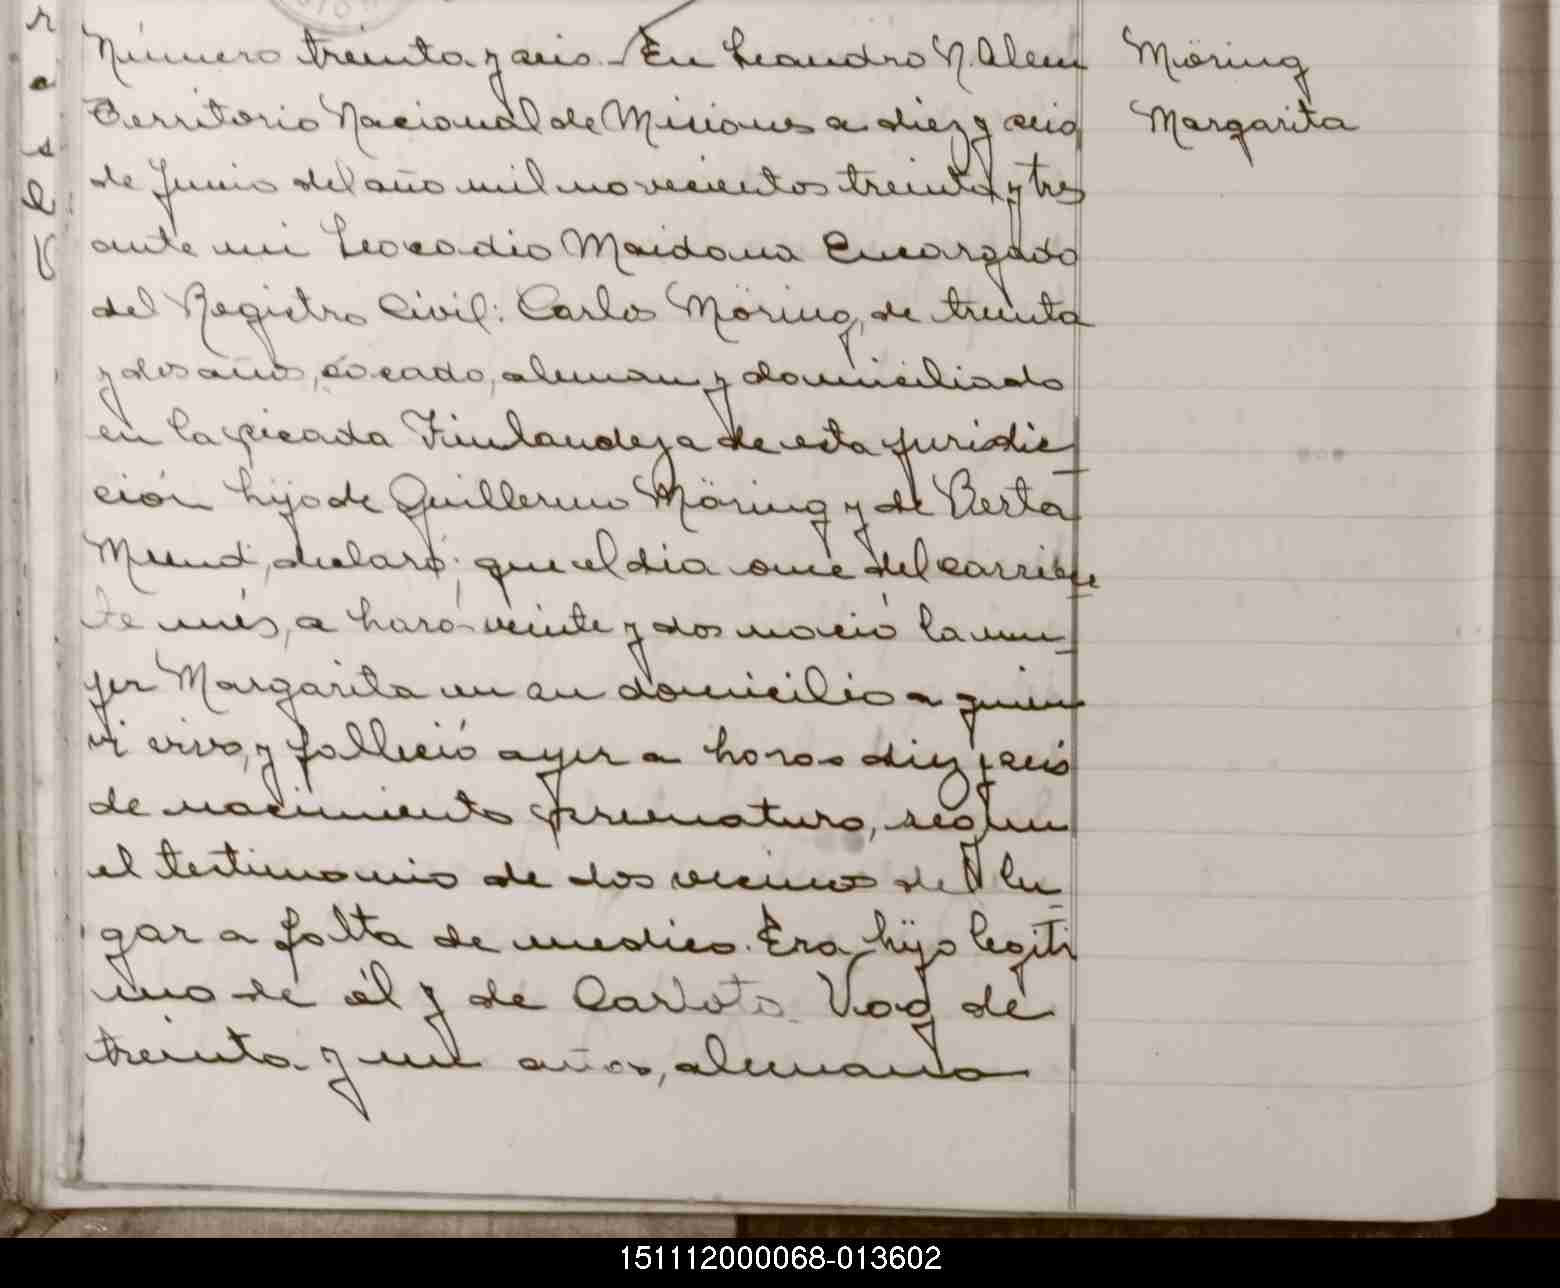 Número treinta y seis.- En Leandro N. Alem
Territorio Nacional de Misiones a diez y seis
de Junio del año mil novecientos treinta y tres
ante mi Leocadio Maidana Encargado
del Registro Civil: Carlos Möring, de treinta
y dos años, casado, aleman y domiciliado
en la picada Finlandeza de esta juridic
ción hijo de Guillermo Möring y de Berta
Mund, declaró; que el dia once del corrien
te més, a horas veinte y dos nació la mu
jer Margarita en su domicilio a quien
vi viva, y falleció ayer a horas diez y seis
de nacimiento prematuro, segun
el testimonio de dos vecinos del lu
gar a falta de medico. Era hijo legiti
mo de él y de Carlota Vog de
treinta y un años, alemana
Möring
Margarita
151112000068-013602